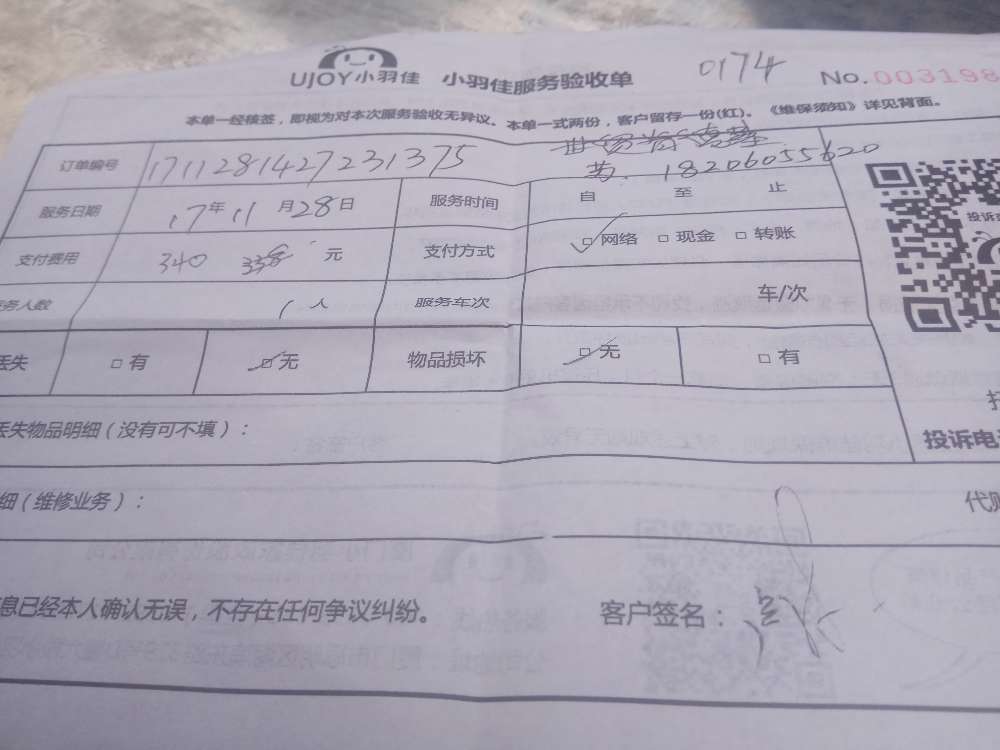 UJOY小羽佳 小羽佳服务验收单 0174 No.003198
本单一经核签，即视为对本次服务验收无异议。本单一式两份，客户留存一份(红)。《维保须知》详见背面。
订单编号 1711281427231375
黄. 18206055620
服务日期 17年11月28日 服务时间 自 至 止
支付费用 340 元 支付方式 网络 现金 转账
务人数 1人 服务车次 车/次
丢失 有 无 物品损坏 无 有
投诉
丢失物品明细（没有可不填）：
投诉电
细（维修业务）：
代购
息已经本人确认无误，不存在任何争议纠纷。 客户签名：